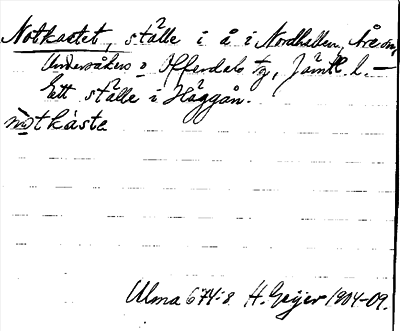 Notkastet, ställe i å i Nordhallen, Åre sn,
Undersåkers o. Offerdals tg, Jämtl. l. —
Ett ställe i Häggån.
nòtkàste
Ulma 674:8. H. Geijer 1904-09.